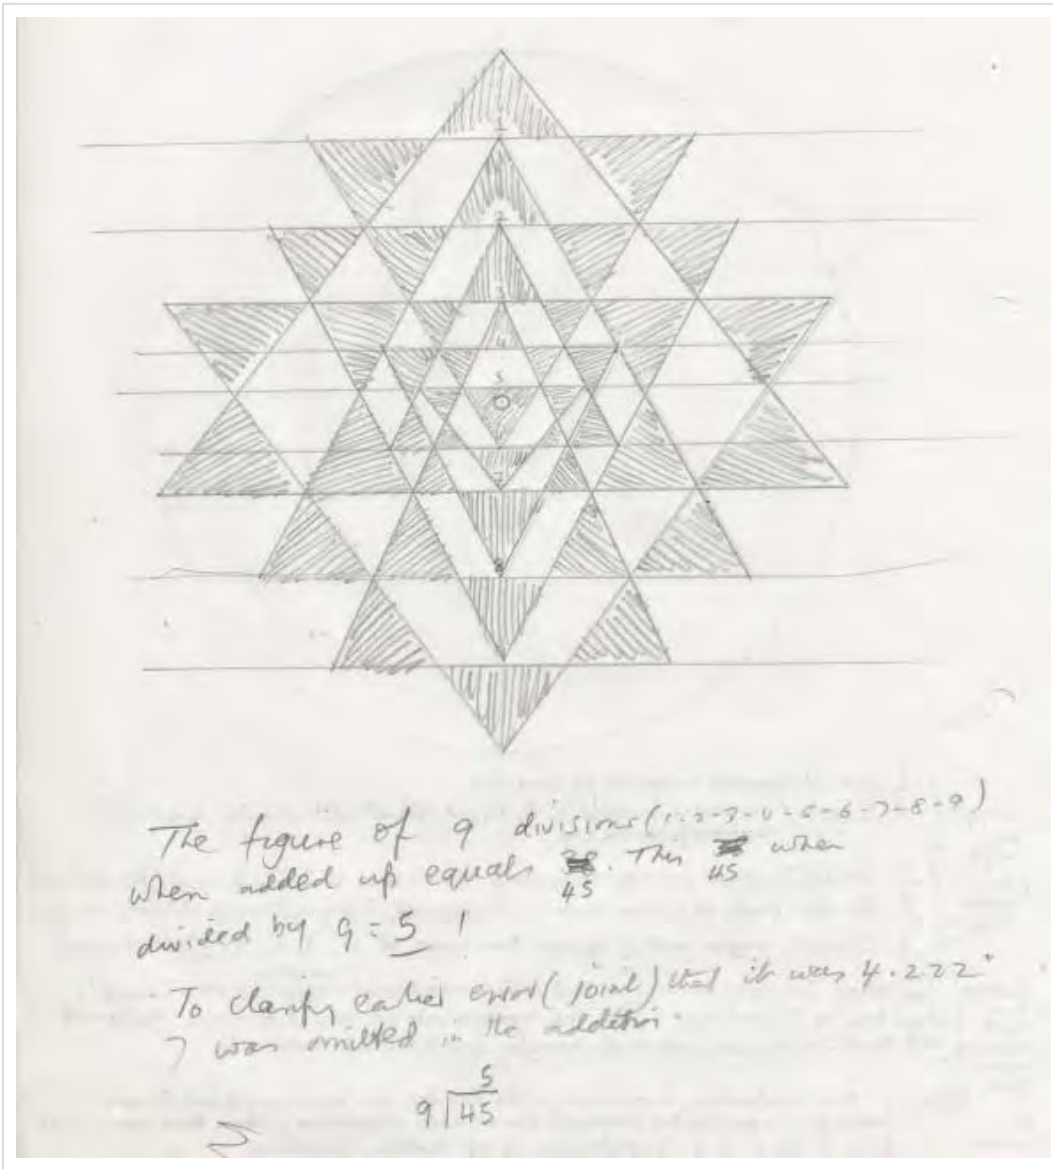 1
2
3
4
5
7
8
The figure of 9 divisions (1-2-3-4-5-6-7-8-9)
when added up equals 45. This 45 when
divided by 9 = 5 !
To clarify earlier error (joint) that it was 4.222°
7 was omitted in the addition.
5
9 45